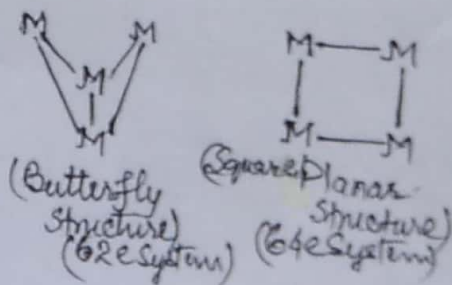 M M
M
M
(Butterfly
Structure)
(62e System)
M M
M M
(Square Planar
Structure)
(64e System)